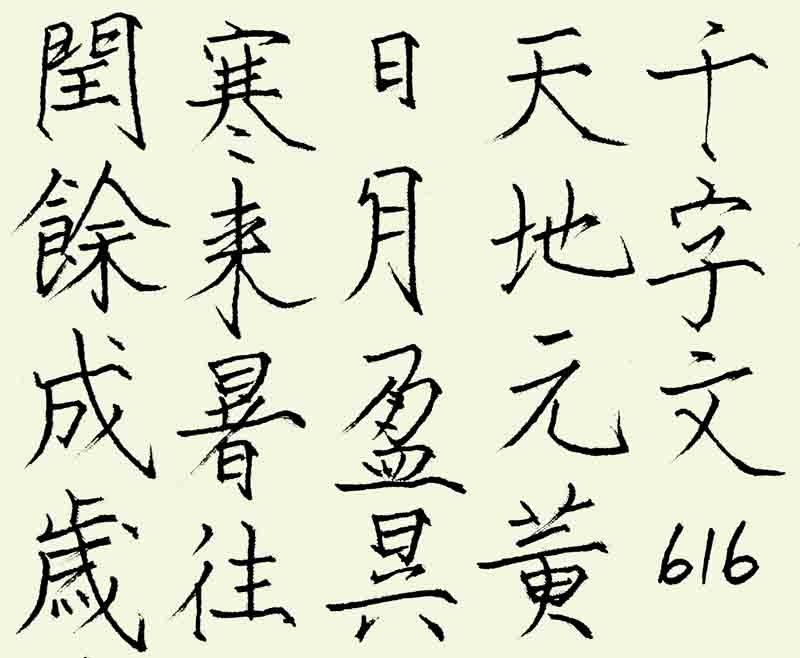 千字文616
天地元黄
日月盈昃
寒来暑往
閏餘成歳